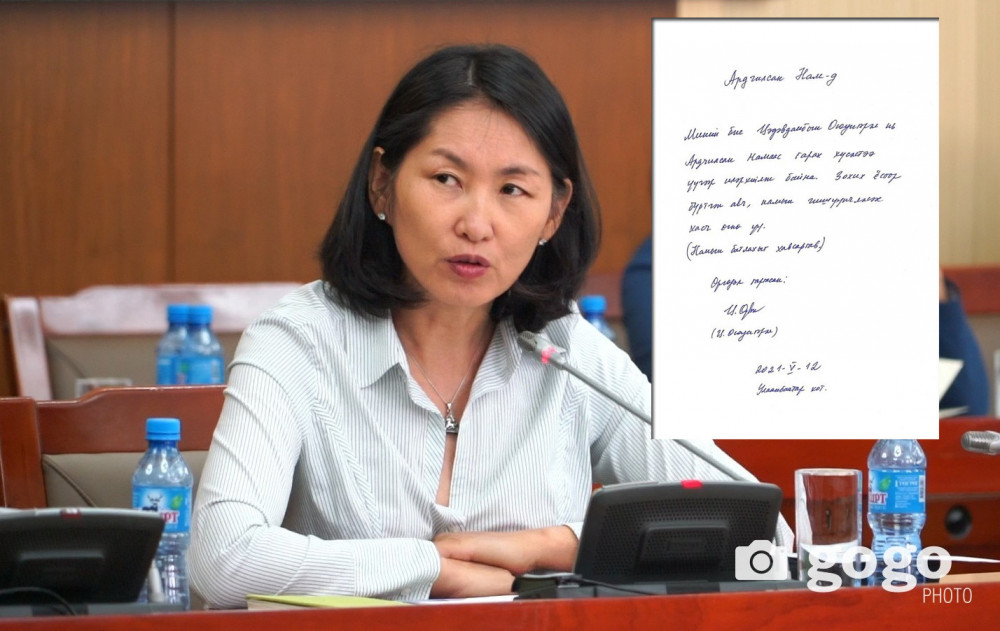 Ардчилсан Нам-д
Миний бие Цэдэвдамбын Оюунгэрэл нь
Ардчилсан Намаас гарах хүсэлтээ
үүгээр илэрхийлж байна. Зохих ёсоор
бүртгэн авч, намын гишүүнчлэлээс
хасч өгнө үү.
(Намын батлахыг хавсаргав)
Өргөдөл гаргасан:
(Ц. Оюунгэрэл)
2021-V-12
Улаанбаатар хот.
gogo
PHOTO